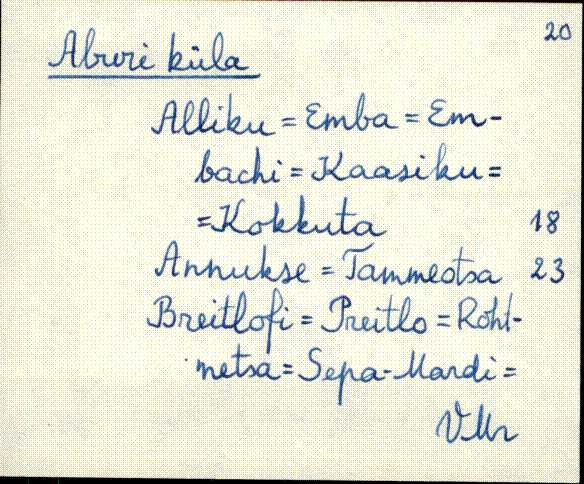 20
Abruri küla
Alliku = Emba = Em-
bachi = Kaasiku =
= Kokkuta 18
Annukse = Tammeotsa 23
Breitlofi = Preitlo = Roht-
metsa = Sepa-Mardi =